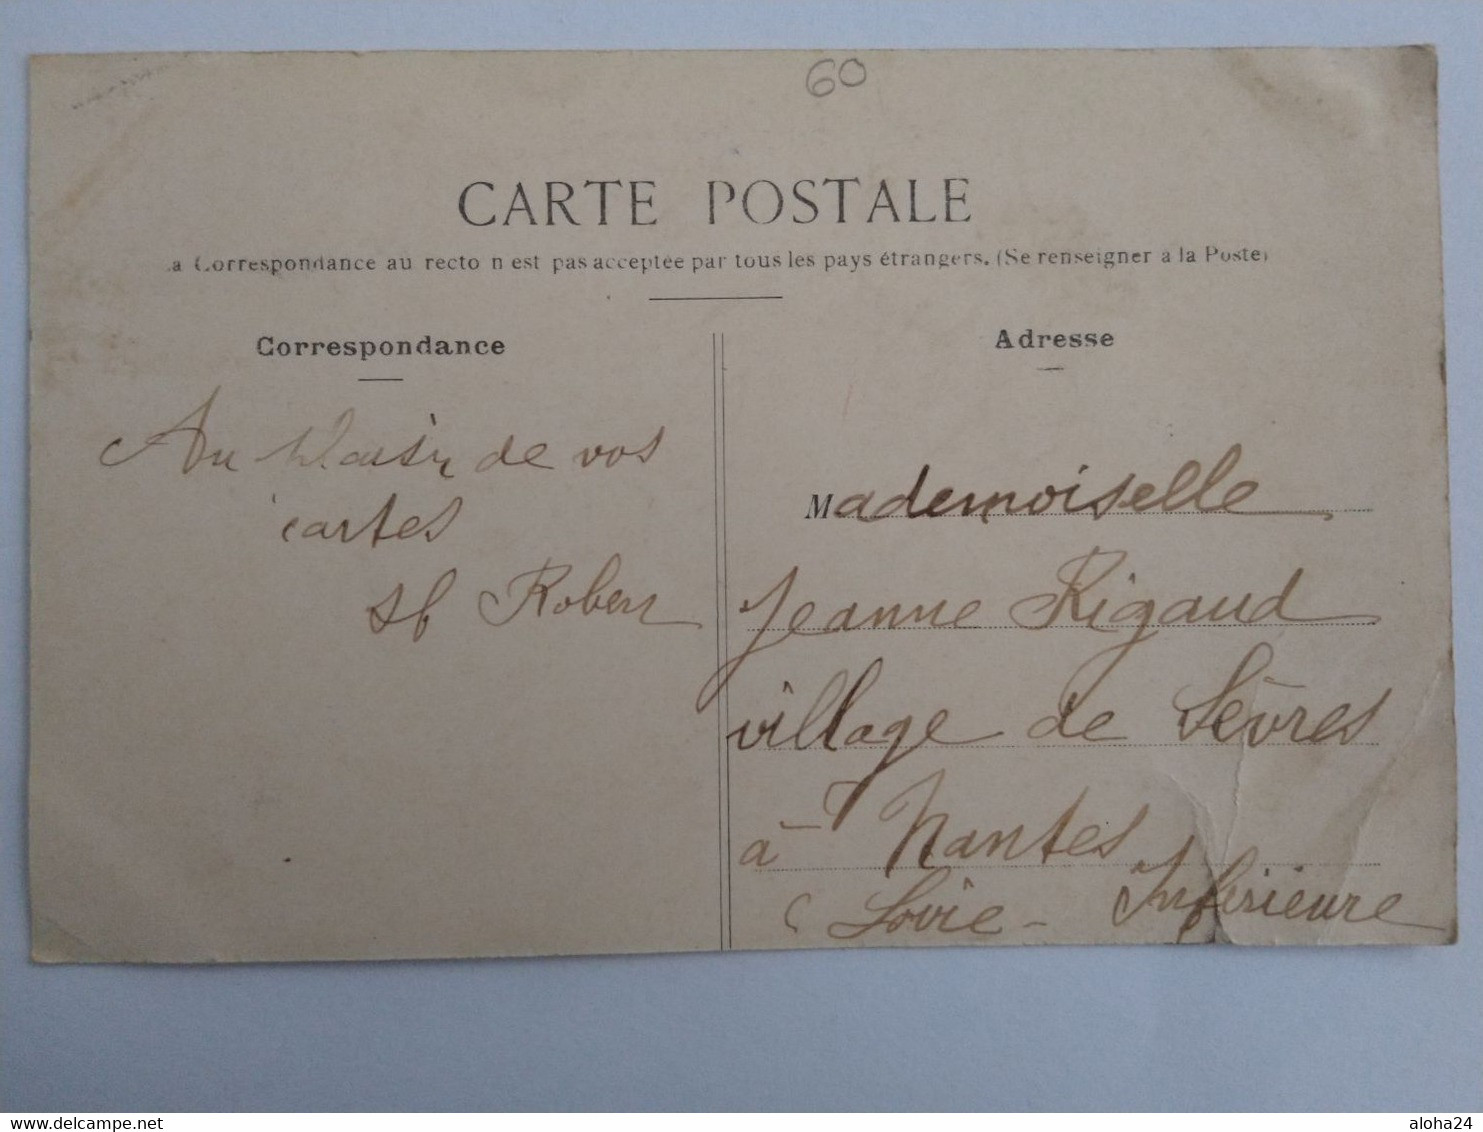 60
CARTE POSTALE
La Correspondance au recto n'est pas acceptée par tous les pays étrangers. (Se renseigner à la Poste)
Correspondance
Adresse
Au plaisir de vos
cartes
Mademoiselle
Jeanne Rigaud
village de Sèvres
à Nantes
Loire - Inférieure
www.delcampe.net
aloha24